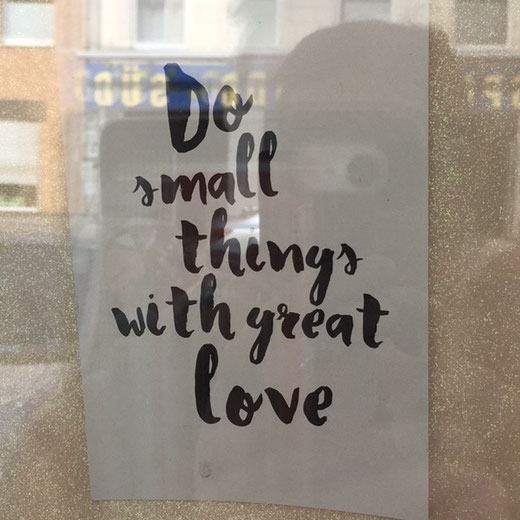 Do
small
things
with great
love